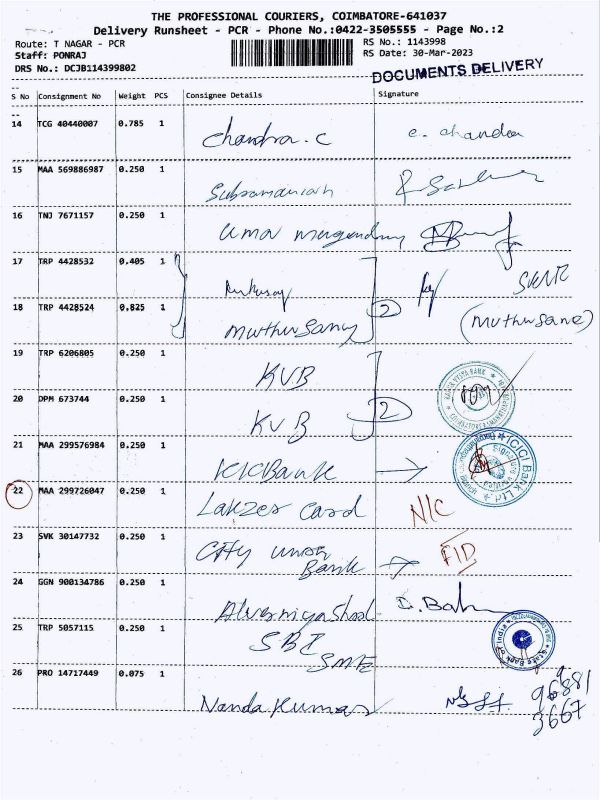 THE PROFESSIONAL COURIERS, COIMBATORE-641037
Delivery Runsheet - PCR - Phone No.:0422-3505555 - Page No.:2
Route: T NAGAR - PCR
Staff: PONRAJ
DRS No.: DCJB114399802
RS No.: 1143998
RS Date: 30-Mar-2023
DOCUMENTS DELIVERY
S No Consignment No Weight PCS Consignee Details Signature
14 TCG 40440007 0.785 1
Chandra.c c. chandra
15 MAA 569886987 0.250 1
Subramaniah
16 TNJ 7671157 0.250 1
Uma
17 TRP 4428532 0.405 1
18 TRP 4428524 0.825 1
2
Muthusamy (Muthusane)
19 TRP 6206805 0.250 1
KVB
20 DPM 673744 0.250 1
2
KVB
21 MAA 299576984 0.250 1
ICICI Bank Ltd
ICICBank
22 MAA 299726047 0.250 1
Lakzer Card N/C
23 SVK 30147732 0.250 1
City union FID
Bank
24 GGN 900134786 0.250 1
25 TRP 5057115 0.250 1
SBI
SME
State Bank of India
26 PRO 14717449 0.075 1
Nanda Kumar
3667